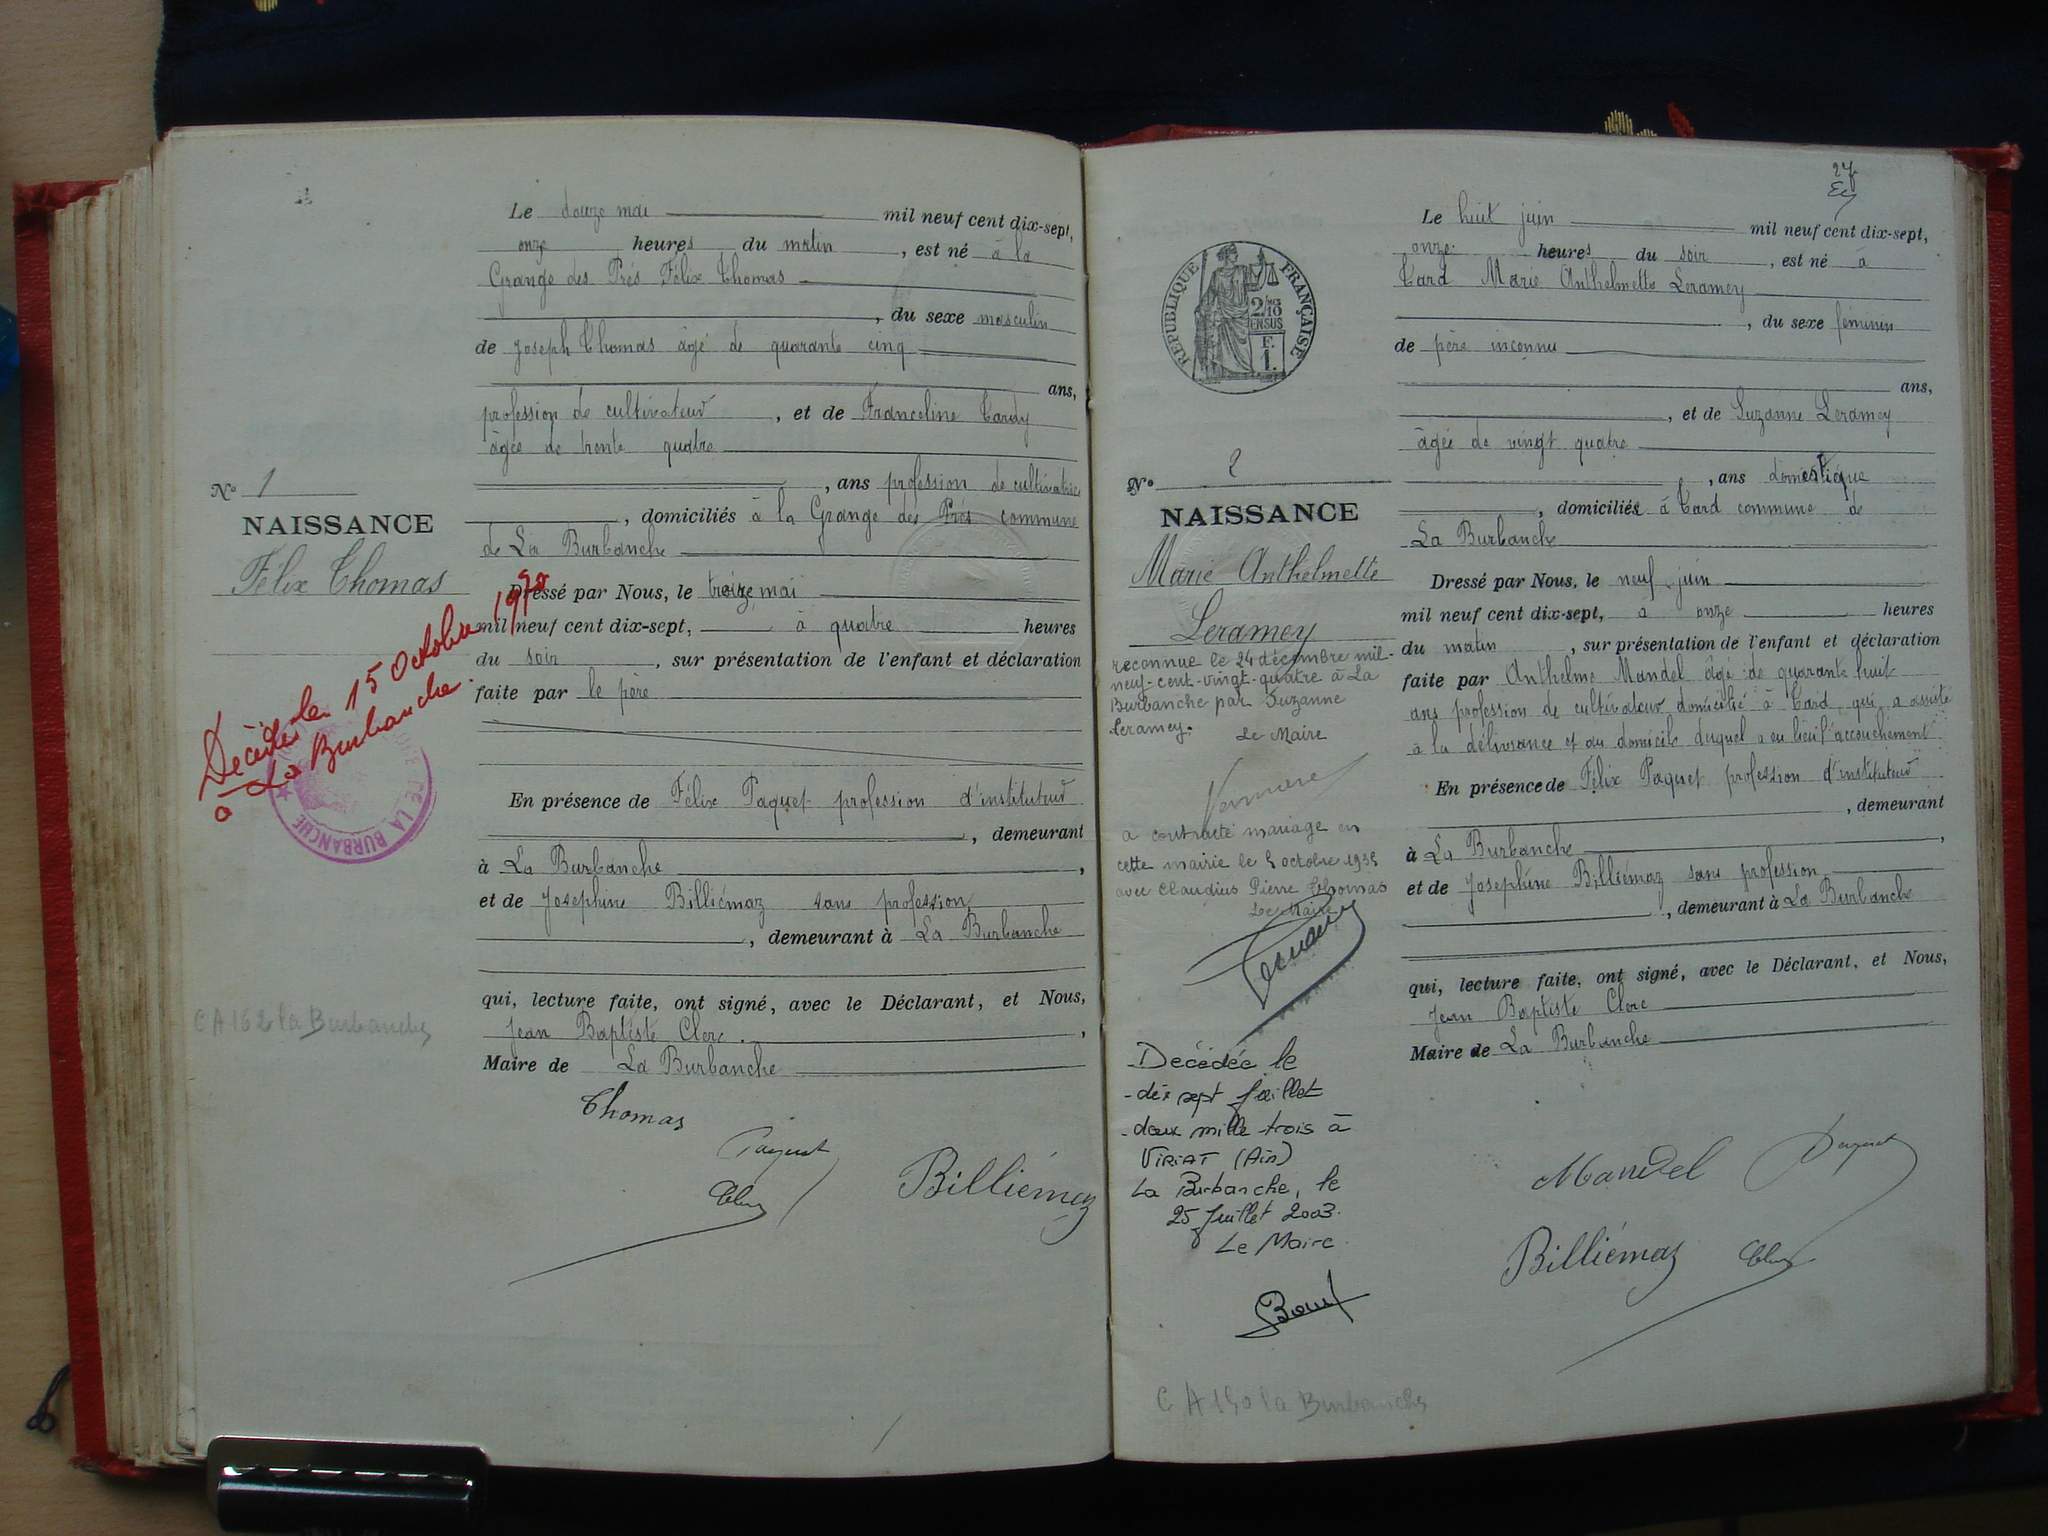 Le douze mai mil neuf cent dix-sept,
onze heures du matin, est né à la
Grange des Prés Félix Thomas
, du sexe masculin
de Joseph Thomas âgé de quarante cinq
ans,
profession de cultivateur, et de Franceline Tardy
âgée de trente quatre
, ans profession de cultivatrice
, domiciliés à la Grange des Prés commune
de La Burbanche
Dressé par Nous, le treize mai
mil neuf cent dix-sept, à quatre heures
du soir, sur présentation de l'enfant et déclaration
faite par le père
En présence de Félix Paquet profession d'instituteur
, demeurant
à La Burbanche,
et de Joséphine Billiémaz sans profession
, demeurant à La Burbanche
qui, lecture faite, ont signé, avec le Déclarant, et Nous,
Jean Baptiste Clerc,
Maire de La Burbanche
Thomas
Paquet
Billiémaz
Clerc
N° 1
NAISSANCE
Félix Thomas
Décédé le 15 Octobre
à La Burbanche.
LA BURBANCHE
CA 162 la Burbanche
27
Le huit juin mil neuf cent dix-sept,
onze heures du soir, est né à
Tard Marie Anthelmette Leramey
, du sexe féminin
de père inconnu
ans,
, et de Suzanne Leramey
âgée de vingt quatre
, ans domestique
, domiciliés à Tard commune de
La Burbanche
Dressé par Nous, le neuf juin
mil neuf cent dix-sept, à onze heures
du matin, sur présentation de l'enfant et déclaration
faite par Anthelme Mandel âgé de quarante huit
ans profession de cultivateur domicilié à Tard, qui a assisté
à la délivrance et au domicile duquel a eu lieu l'accouchement
En présence de Félix Paquet profession d'instituteur
, demeurant
à La Burbanche,
et de Joséphine Billiémaz sans profession
, demeurant à La Burbanche
qui, lecture faite, ont signé, avec le Déclarant, et Nous,
Jean Baptiste Clerc
Maire de La Burbanche
Mandel
Paquet
Billiémaz
Clerc
REPUBLIQUE FRANÇAISE
2/10
EN SUS
F.
1.
N° 2
NAISSANCE
Marie Anthelmette
Leramey
reconnue le 24 décembre mil-
neuf-cent-vingt-quatre à La
Burbanche par Suzanne
Leramey.
Le Maire
a contracté mariage en
cette mairie le 5 octobre 1935
avec Claudius Pierre Thomas
Le Maire
Décédée le
dix sept juillet
deux mille trois à
VIRIAT (Ain)
La Burbanche, le
25 juillet 2003.
Le Maire
CA 150 la Burbanche